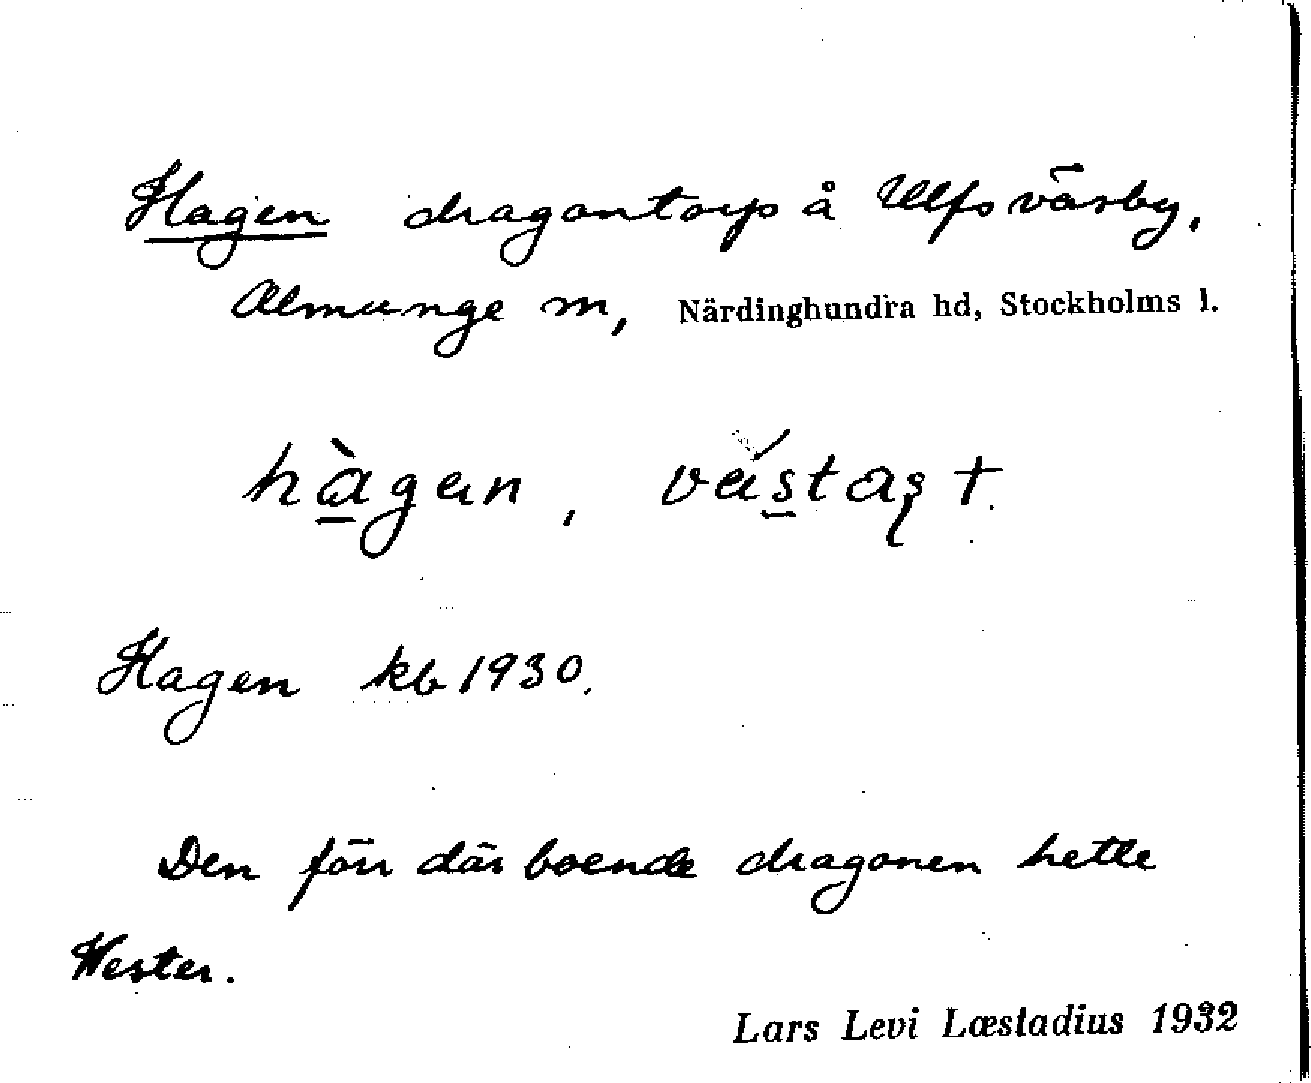 Hagen dragontorp å Ulfsväsby,
Almunge sn, Närdinghundra hd, Stockholms l.
hàgen,
Hagen kb 1930.
Den förr där boende dragonen hette
Wester.
Lars Levi Læstadius 1932